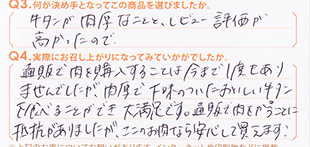 Q3.何が決め手となってこの商品を選びましたか。
牛タンが肉厚なことと、レビュー評価が
高かったので。
Q4.実際にお召し上がりになってみていかがでしたか。
通販で肉を購入することは今まで1度もあり
ませんでしたが肉厚で下味のついたおいしい牛タン
を食べることができ大満足です。通販で肉をかうことに
抵抗がありましたが、ここのお肉なら安心して買えます!